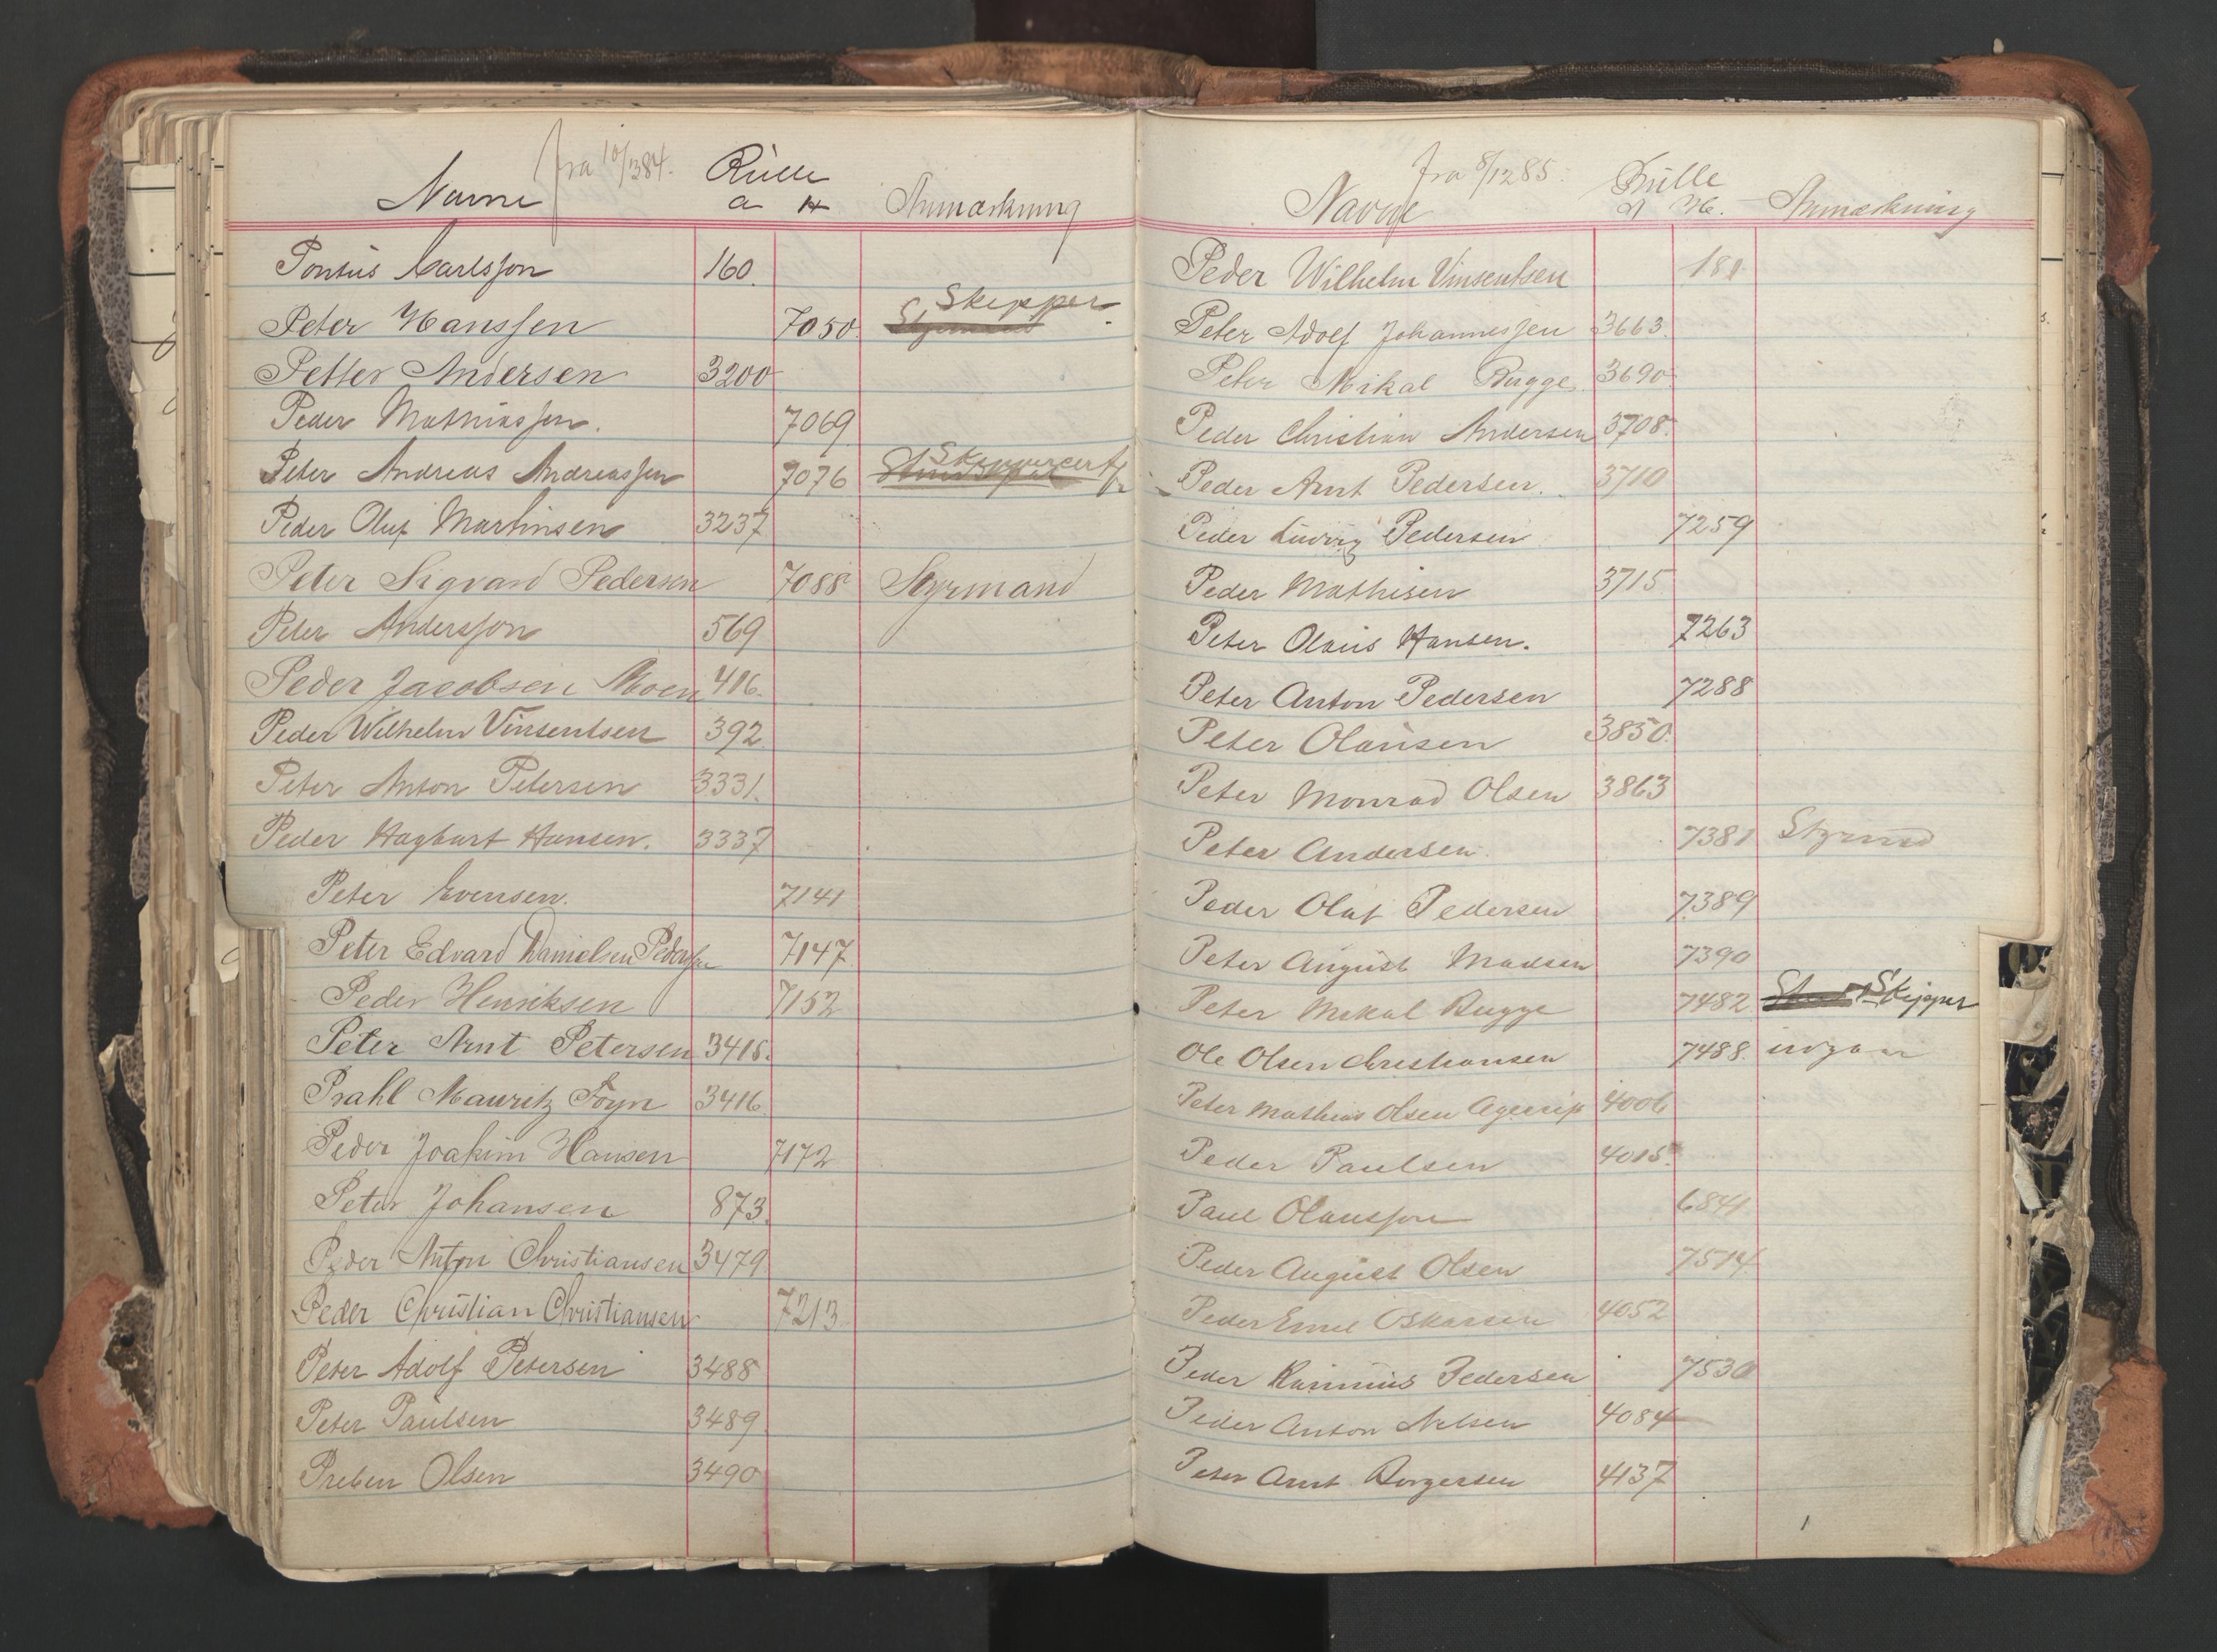 fra 10/3 84.
Navne Rulle Anmærkning
a H
Pontus Carlsson 160.
Skipper.
Peter Hanssen 7050. Styrmand
Petter Andersen 3200
Peder Mathiassen. 7069
Skippercertf
Peter Andreas Andreassen 7076
Peder Oluf Martinsen 3237
Peter Sigvard Pedersen 7088 Styrmand
Peter Andersson 569
Peder Jacobsen Moen 416.
Peder Wilhelm Vinsentsen 392
Peter Anton Petersen 3331.
Peder Hagbart Hansen. 3337
Peter Evensen. 7141
Peter Edvard Danielsen Pedersen 7147
Peder Henriksen 7152
Peter Arnt Petersen 3415.
Prahl Mauritz Foyn 3416.
Peder Joakim Hansen 7172
Peter Johansen 873.
Peder Anton Christiansen 3479
Peder Christian Christiansen 7213.
Peter Adolf Petersen 3488
Peter Paulsen 3489
Preben Olsen 3490
fra 8/12 85.
Navne Rulle Anmærkning
A H.
Peder Wilhelm Vinsentsen 181
Peter Adolf Johannessen 3663.
Peter Mikal Bugge. 3690.
Peder Christian Andersen 3708.
Peder Arnt Pedersen. 3710
Peder Ludvig Pedersen 7259
Peder Mathisen 3715
Peter Olaus Hansen. 7263
Peter Anton Pedersen 7288
Peter Olausen 3850.
Peter Monrad Olsen 3863
Peter Andersen 7381 Styrmd
Peder Olaf Pedersen 7389
Peter August Madsen 7390
Peter Mikal Bugge 7482 Skipper
Ole Olsen Christiansen 7488. udgaar
Peter Mathias Olsen Agerup 4006
Peder Paulsen 4015.
Paul Olausson 6841
Peder August Olsen 7514
Peder Emil Oskarsen 4052
Peder Rasmus Pedersen 7530
Peder Anton Nilsen 4084
Peter Arnt Borgersen 4137